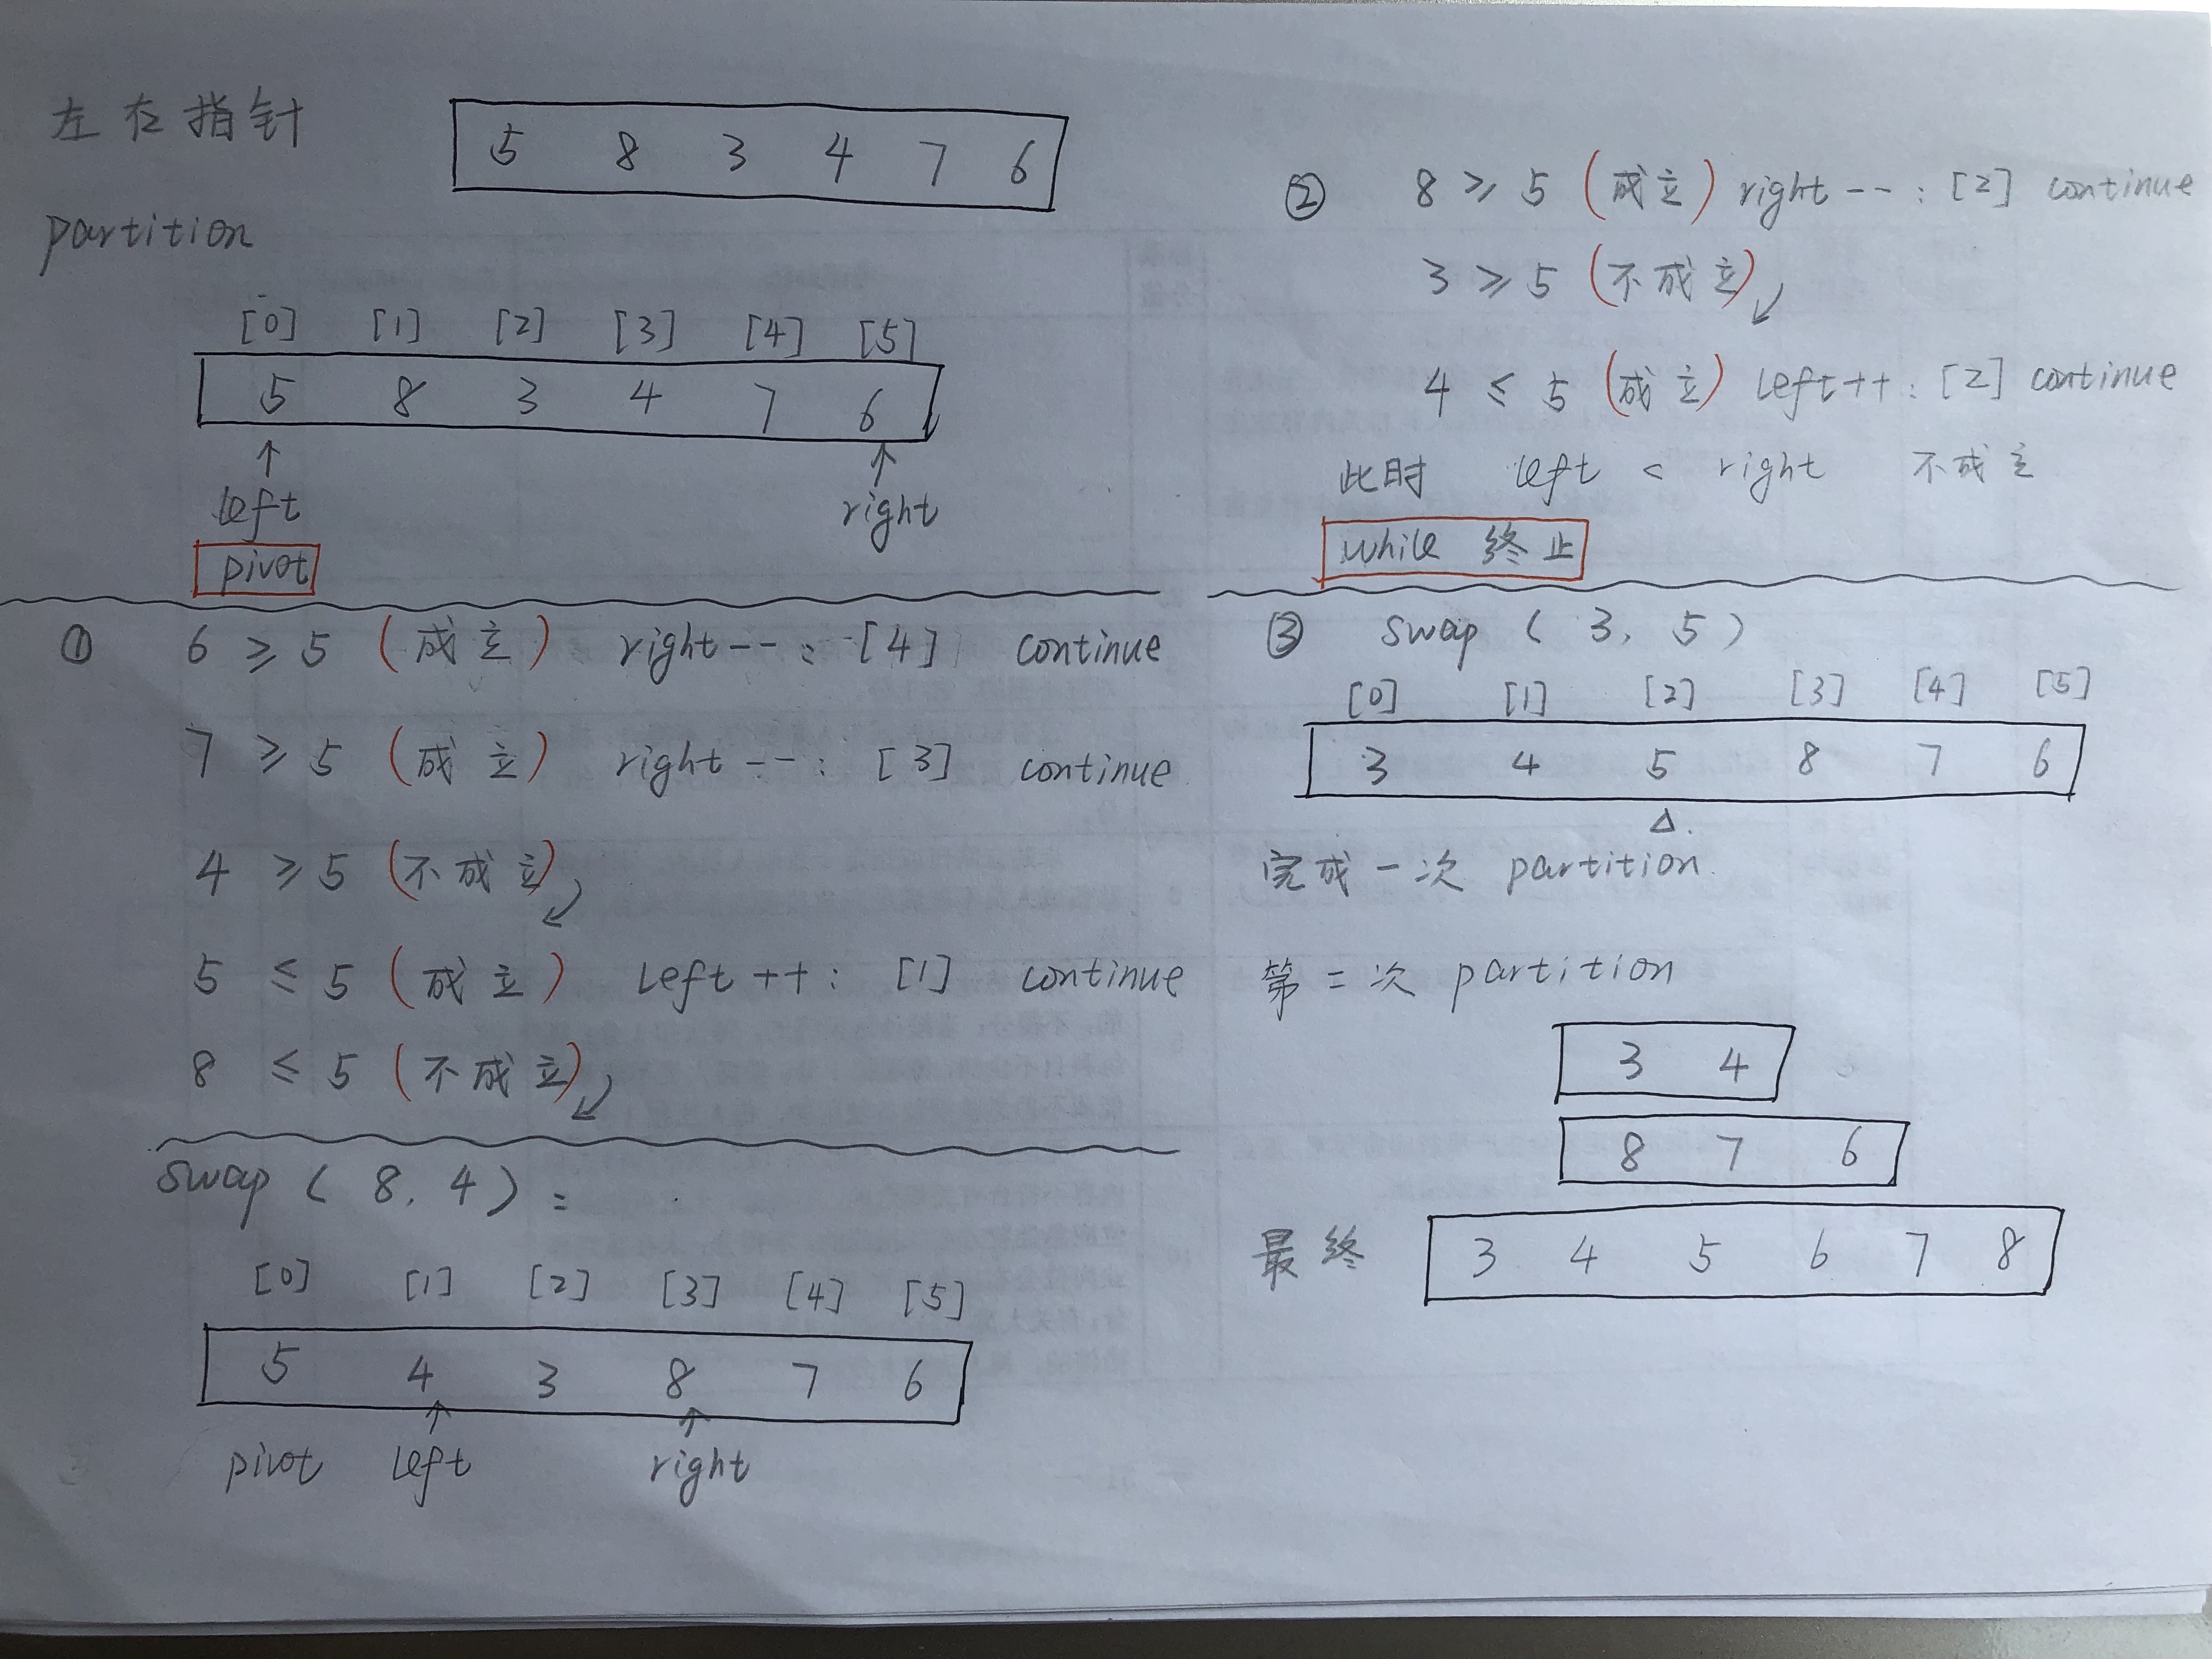 左右指针
5 8 3 4 7 6
partition
[0] [1] [2] [3] [4] [5]
5 8 3 4 7 6
↑ ↑
left right
pivot
① 6 ≥ 5 (成立) right-- : [4] continue
7 ≥ 5 (成立) right-- : [3] continue
4 ≥ 5 (不成立)
5 ≤ 5 (成立) left++ : [1] continue
8 ≤ 5 (不成立)
swap ( 8, 4 ) :
[0] [1] [2] [3] [4] [5]
5 4 3 8 7 6
↑ ↑
pivot left right
② 8 ≥ 5 (成立) right-- : [2] continue
3 ≥ 5 (不成立)
4 ≤ 5 (成立) left++ : [2] continue
此时 left < right 不成立
while 终止
③ swap ( 3, 5 )
[0] [1] [2] [3] [4] [5]
3 4 5 8 7 6
△.
完成一次 partition.
第二次 partition
3 4
8 7 6
最终 3 4 5 6 7 8